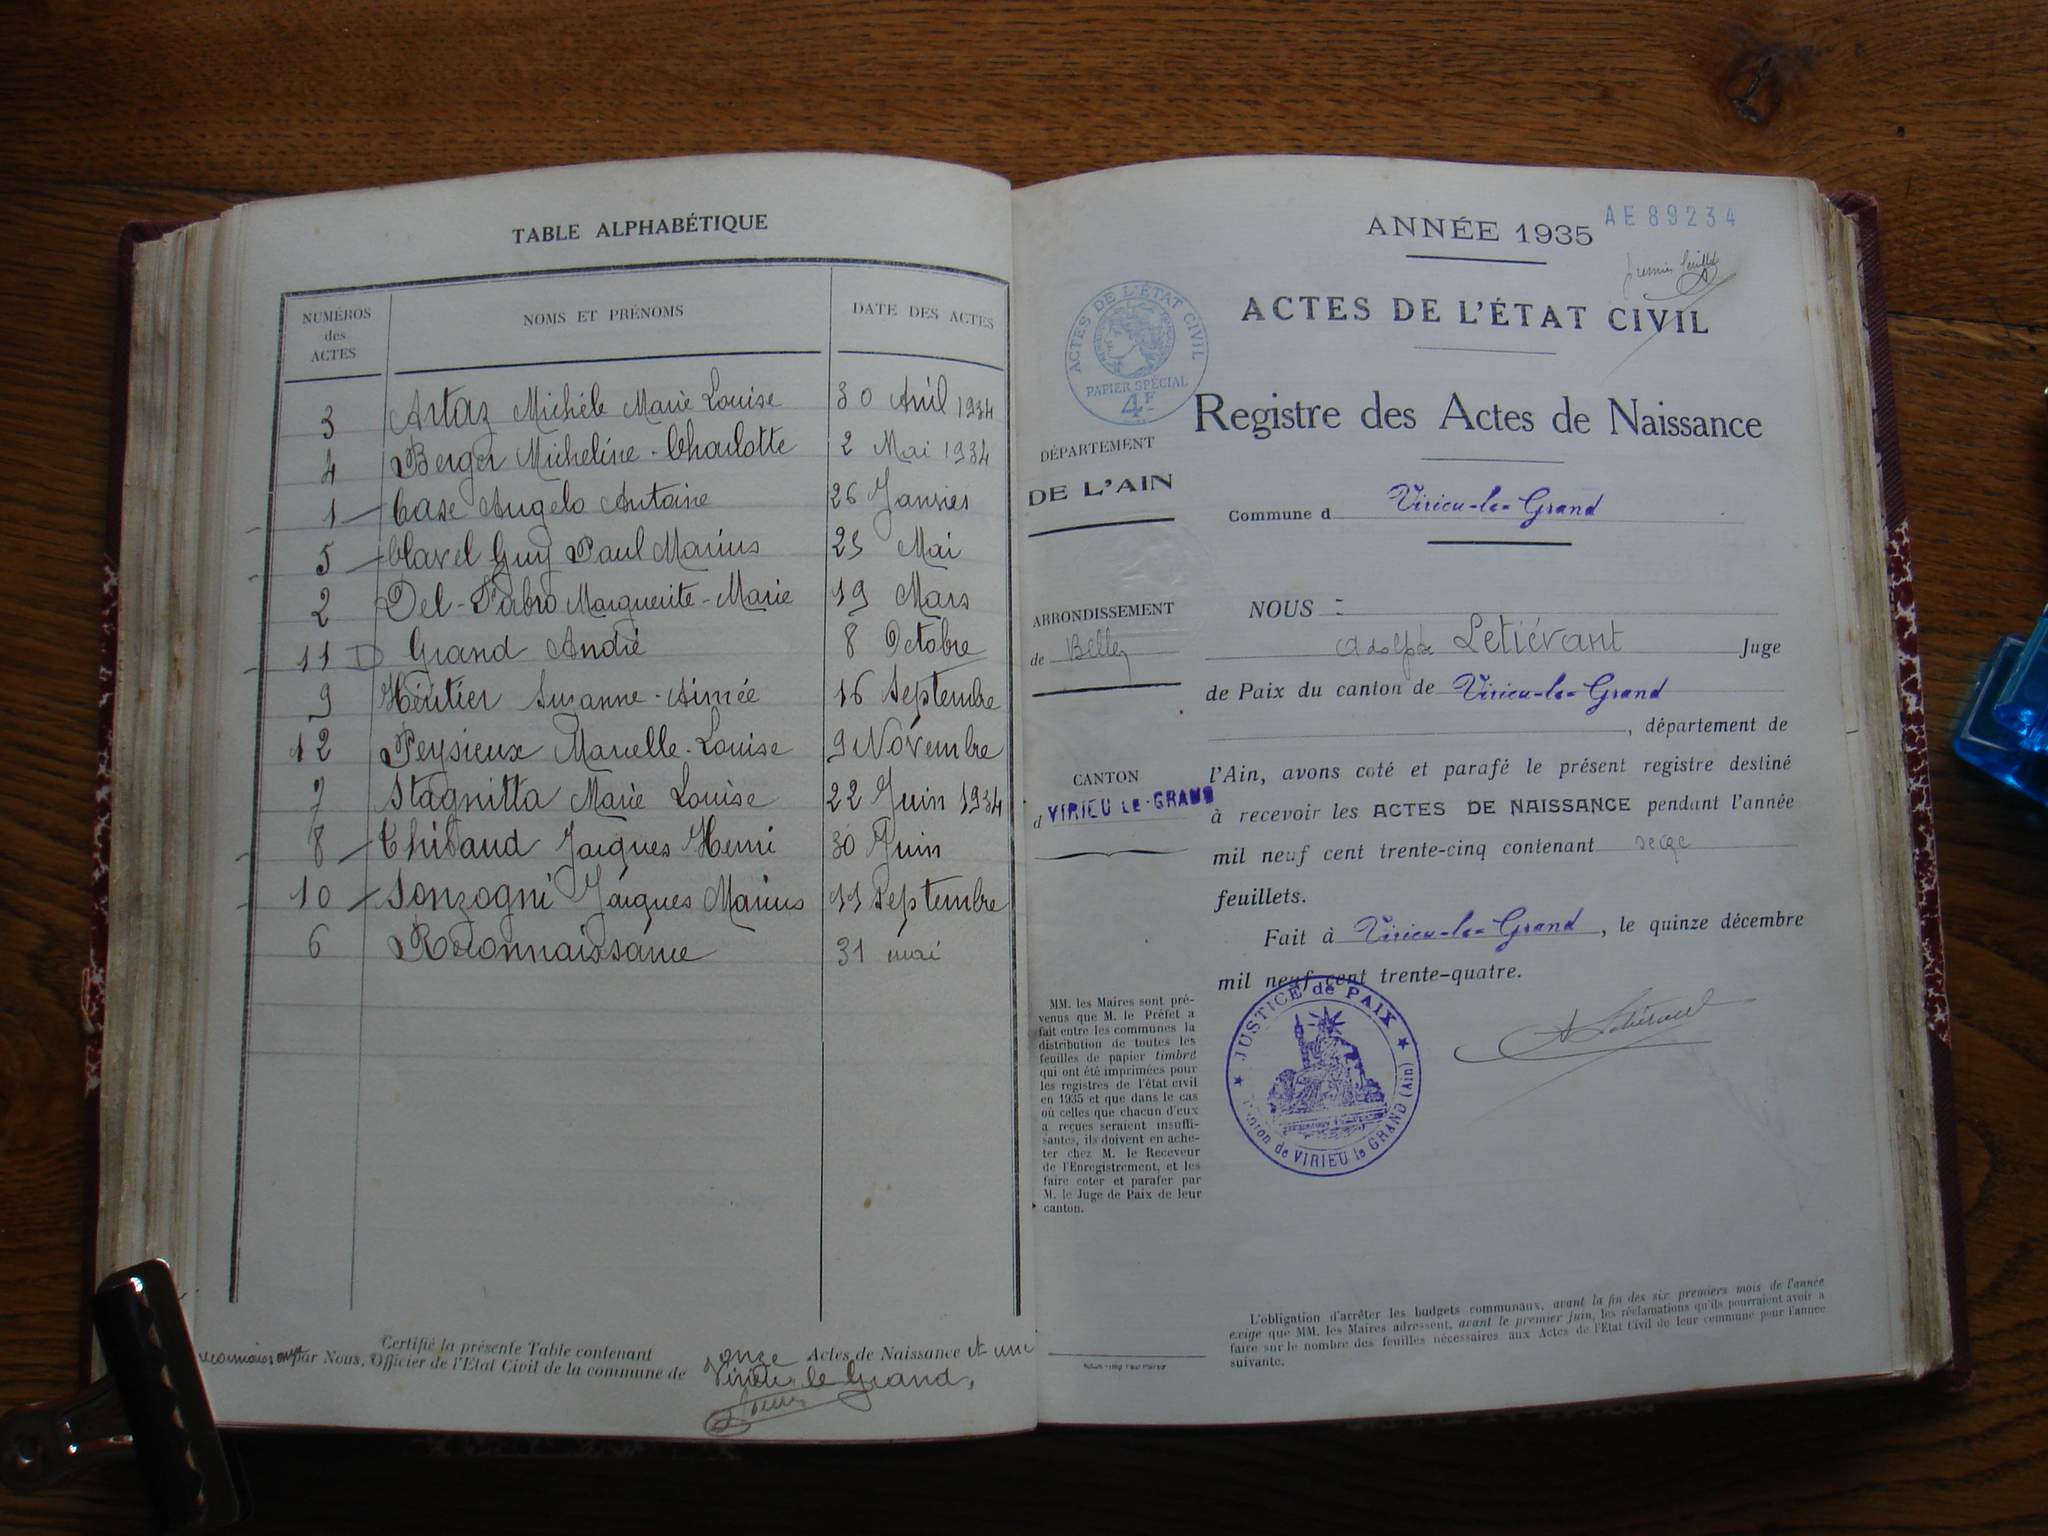 TABLE ALPHABÉTIQUE
NUMÉROS des ACTES NOMS ET PRÉNOMS DATE DES ACTES
3 Artaz Michèle Marie Louise 30 Avril 1934
4 Berger Micheline-Charlotte 2 Mai 1934
1 Case Angelo Antoine 26 Janvier
5 Clavel Guy Paul Marius 25 Mai
2 Del-Fabro Marguerite-Marie 19 Mars
11 D Grand André 8 Octobre
9 Héritier Suzanne-Aimée 16 Septembre
12 Peysieux Marcelle-Louise 9 Novembre
7 Stagnitta Marie Louise 22 Juin 1934
8 Thibaud Jacques Henri 30 Juin
10 Sonzogni Jacques Marius 11 Septembre
6 Reconnaissance 31 mai
Certifié la présente Table contenant onze Actes de Naissance et une
reconnaissance par Nous, Officier de l'Etat Civil de la commune de Virieu le Grand,
ANNÉE 1935 AE89234
premier feuillet
ACTES DE L'ÉTAT CIVIL
ACTES DE L'ÉTAT CIVIL
PAPIER SPÉCIAL
4F
Registre des Actes de Naissance
DÉPARTEMENT
DE L'AIN
Commune d Virieu-le-Grand
ARRONDISSEMENT
de Belley
CANTON
d VIRIEU LE-GRAND
NOUS
Adolphe Letiévant Juge
de Paix du canton de Virieu-le-Grand
, département de
l'Ain, avons coté et parafé le présent registre destiné
à recevoir les ACTES DE NAISSANCE pendant l'année
mil neuf cent trente-cinq contenant seize
feuillets.
Fait à Virieu-le-Grand, le quinze décembre
mil neuf cent trente-quatre.
JUSTICE de PAIX
Canton de VIRIEU le GRAND (Ain)
A Letiévant
MM. les Maires sont pré-
venus que M. le Préfet a
fait entre les communes la
distribution de toutes les
feuilles de papier timbré
qui ont été imprimées pour
les registres de l'état civil
en 1935 et que dans le cas
où celles que chacun d'eux
a reçues seraient insuffi-
santes, ils doivent en ache-
ter chez M. le Receveur
de l'Enregistrement, et les
faire coter et parafer par
M. le Juge de Paix de leur
canton.
L'obligation d'arrêter les budgets communaux, avant la fin des six premiers mois de l'année
exige que MM. les Maires adressent, avant le premier juin, les réclamations qu'ils pourraient avoir à
faire sur le nombre des feuilles nécessaires aux Actes de l'Etat Civil de leur commune pour l'année
suivante.